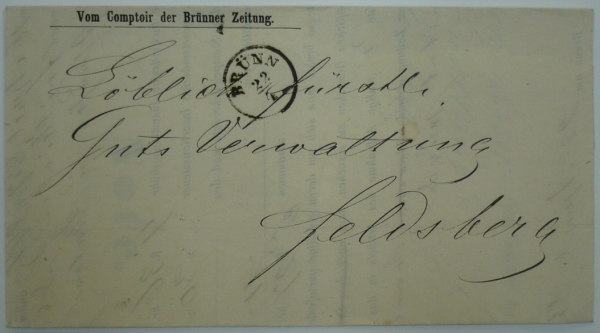 Vom Comptoir der Brünner Zeitung.
BRÜNN
22
Löblich fürstl.
Guts Verwaltung
Feldsberg